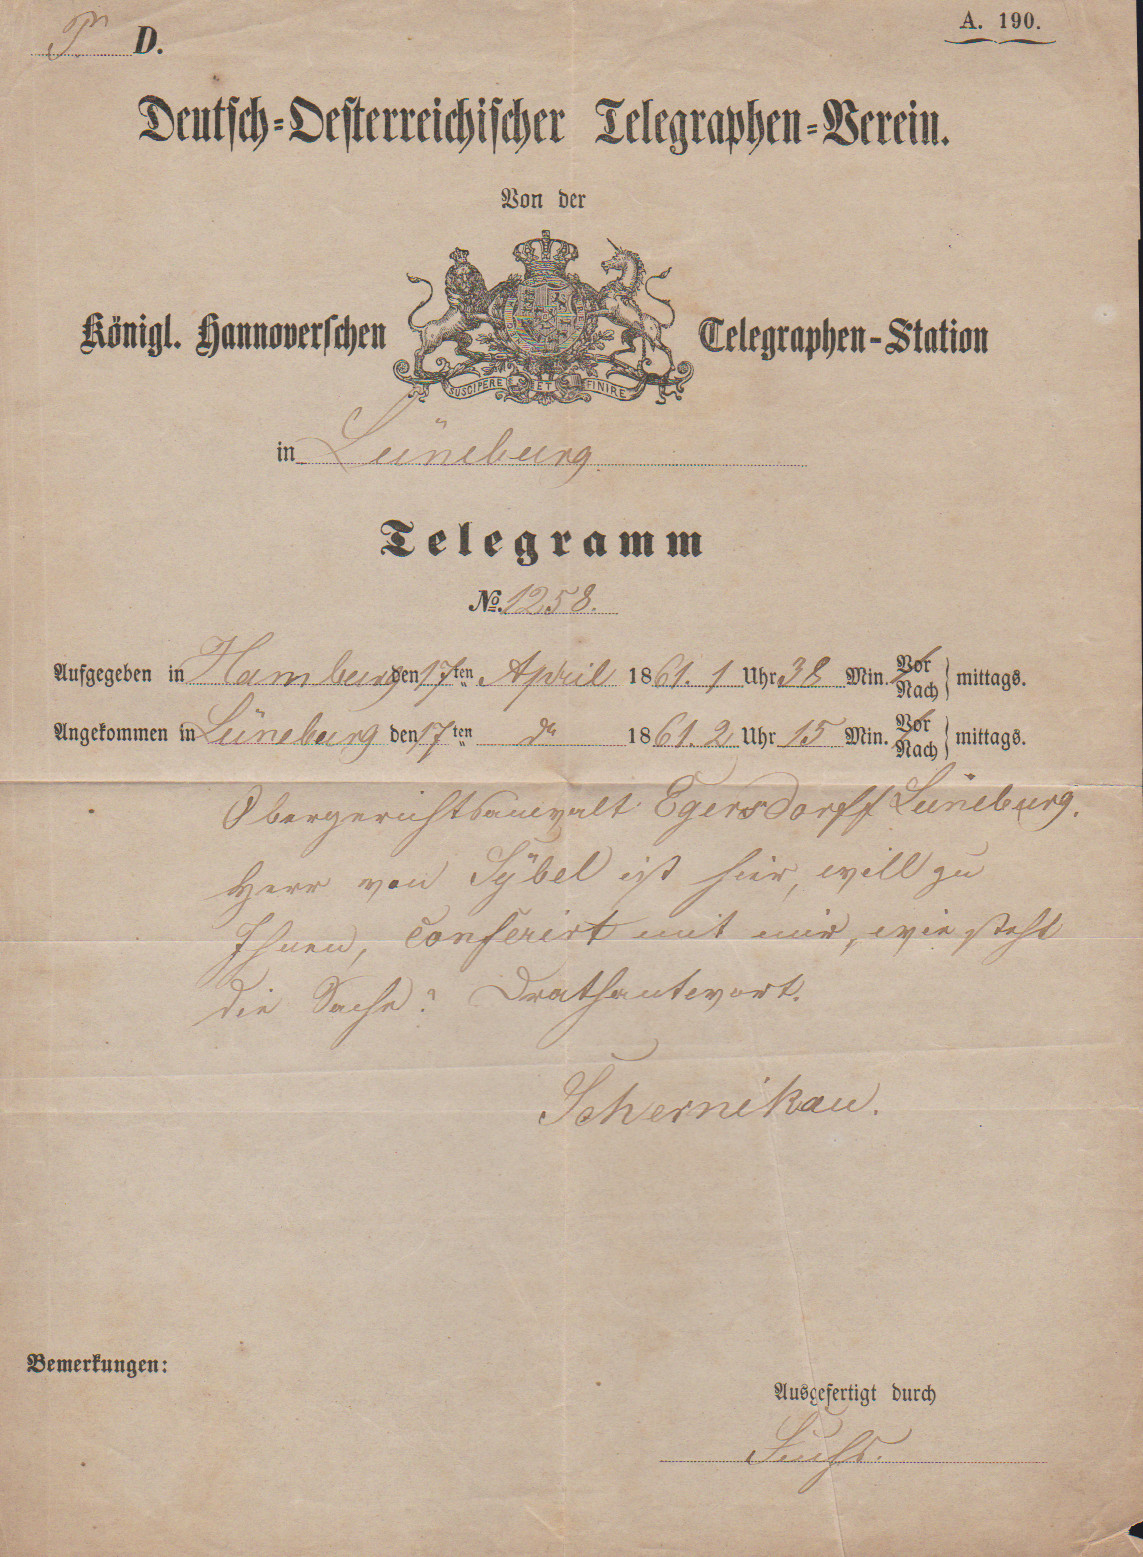 Pr D.
A. 190.
Deutsch-Oesterreichischer Telegraphen-Verein.
Von der
Königl. Hannoverschen Telegraphen-Station
SUSCIPERE ET FINIRE
in Lüneburg.
Telegramm
No. 1258.
Aufgegeben in Hamburg den 17ten April 1861. 1 Uhr 38 Min. Vor Nach mittags.
Angekommen in Lüneburg den 17ten do 1861. 2 Uhr 15 Min. Vor Nach mittags.
Obergerichtsanwalt Egersdorff Lüneburg.
Herr von Sybel ist hier, will zu
Ihnen, conferirt mit mir, wie steht
die Sache? Drathantwort.
Schernikau.
Bemerkungen:
Ausgefertigt durch